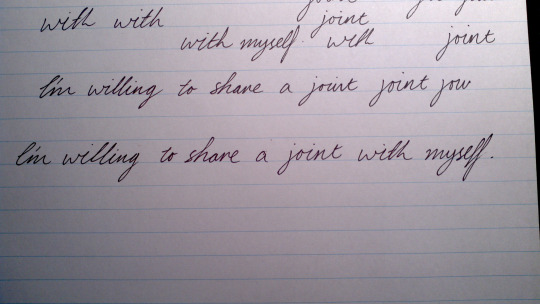 joint
with with
with myself. with joint
I'm willing to share a joint joint jow
I'm willing to share a joint with myself.